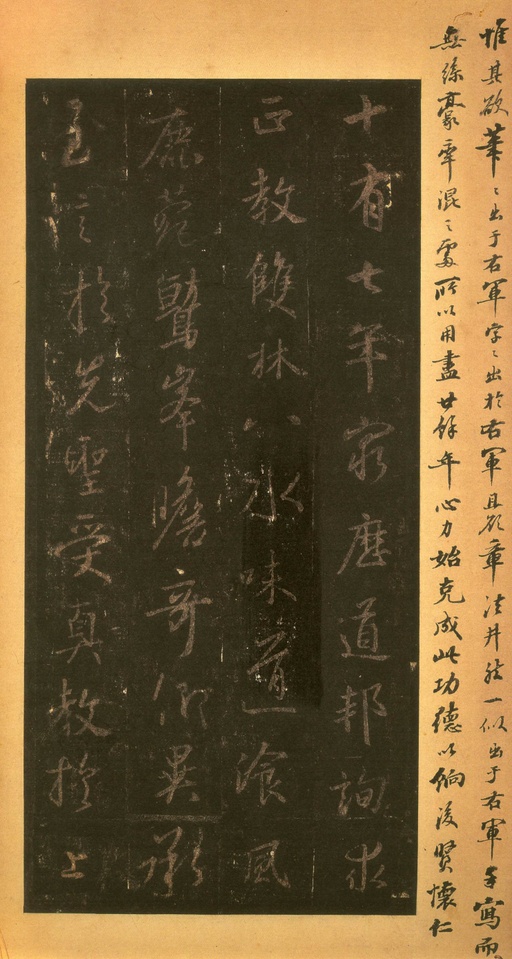 惟其欲筆〻出于右軍字〻出於右軍且欲章法井然一似出于右軍手寫而
無絲豪牽混之處所以用盡廿餘年心力始克成此功德以餉後賢懷仁
十有七年窮歷道邦詢求
正教雙林八水味道飡風
鹿菀鷲峯瞻奇仰異承
至言於先聖受真教於上